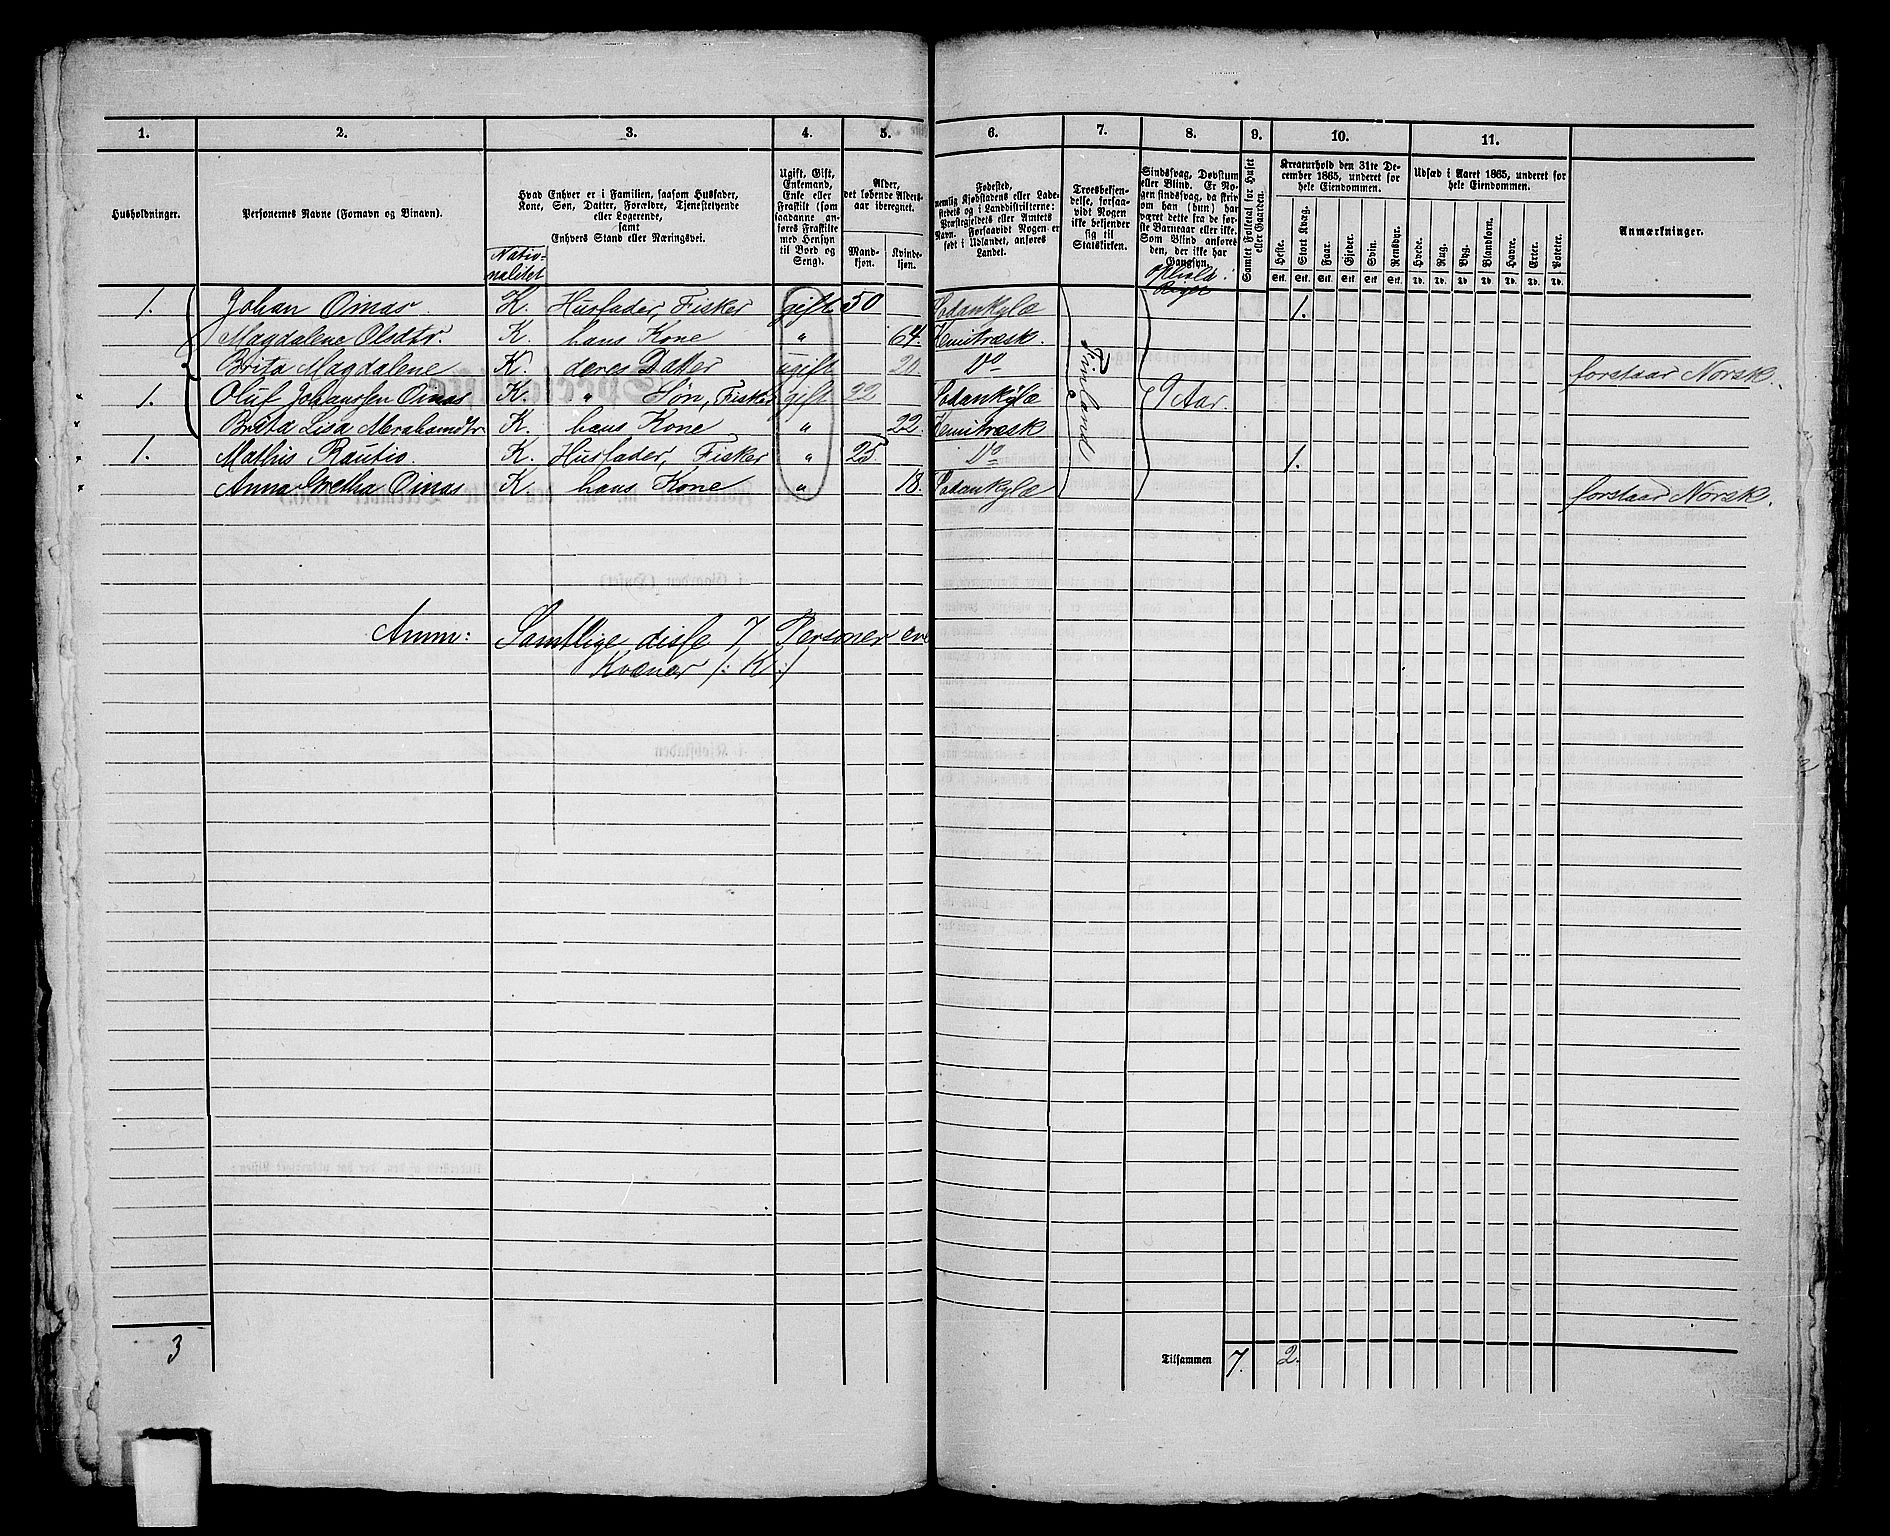 1. 2. 3. 4. 5. 6. 7. 8. 9. 10. 11.
Husholdninger.
Personernes Navne (Fornavn og Binavn).
Hvad Enhver er i Familien, saasom Husfader,
Kone, Søn, Datter, Forældre, Tjenestetyende
eller Logerende,
samt
Enhvers Stand eller Næringsvei.
Natio-
nalitet
Ugift, Gift,
Enkemand,
Enke eller
Fraskilt (som
saadanne an-
føres Fraskilte
med Hensyn
til Bord og
Seng).
Alder,
det løbende Alders-
aar iberegnet.
Mand-
kjøn.
Kvinde-
kjøn.
Fødested,
nemlig Kjøbstadens eller Lade-
stedets og i Landdistrikterne:
Præstegjeldets eller Amtets
Navn. Forsaavidt Nogen er
født i Udlandet, anføres
Landet.
Troesbekjen-
delse, forsaa-
vidt Nogen
ikke bekjender
sig til
Statskirken.
Sindssvag, Døvstum
eller Blind. Er No-
gen sindssvag, da skri-
ves om han (hun) har
været dette fra de før-
ste Barneaar eller ikke.
Som Blind anføres
den, der ikke har
Gangsyn.
Ophold i
Riget
Samlet Folketal for Huset
eller Gaarden.
Kreaturhold den 31te De-
cember 1865, underet for
hele Eiendommen.
Heste. Stort Kvæg. Faar. Gjeder. Svin. Rensdyr.
Stk. Stk. Stk. Stk. Stk. Stk.
Udsæd i Aaret 1865, underet for
hele Eiendommen.
Hvede. Rug. Byg. Blandkorn. Havre. Erter. Poteter.
Td. Td. Td. Td. Td. Td. Td.
Anmærkninger.
1. Johan Oinas. K. Husfader, Fisker gift 50 Sodankylæ 1.
Magdalene Olsdtr. K. hans Kone " 64. Kemitræsk.
Brita Magdalene K. deres Datter ugift 20. Do forstaar Norsk.
1. Oluf Johansen Oinas K. " Søn, Fisker gift 22 Sodankylæ 9 Aar.
Brita Lisa Abrahamdtr K. hans Kone " 22. Kemitræsk
1. Mathis Rautio. K. Husfader, Fisker " 25. Do 1.
Anna Gretha Oinas K hans Kone " 18. Sodankylæ forstaar Norsk.
Finland
Anm: Samtlige disse 7 Personer ere
Kvæner /: K :/
3 Tilsammen 7. 2.